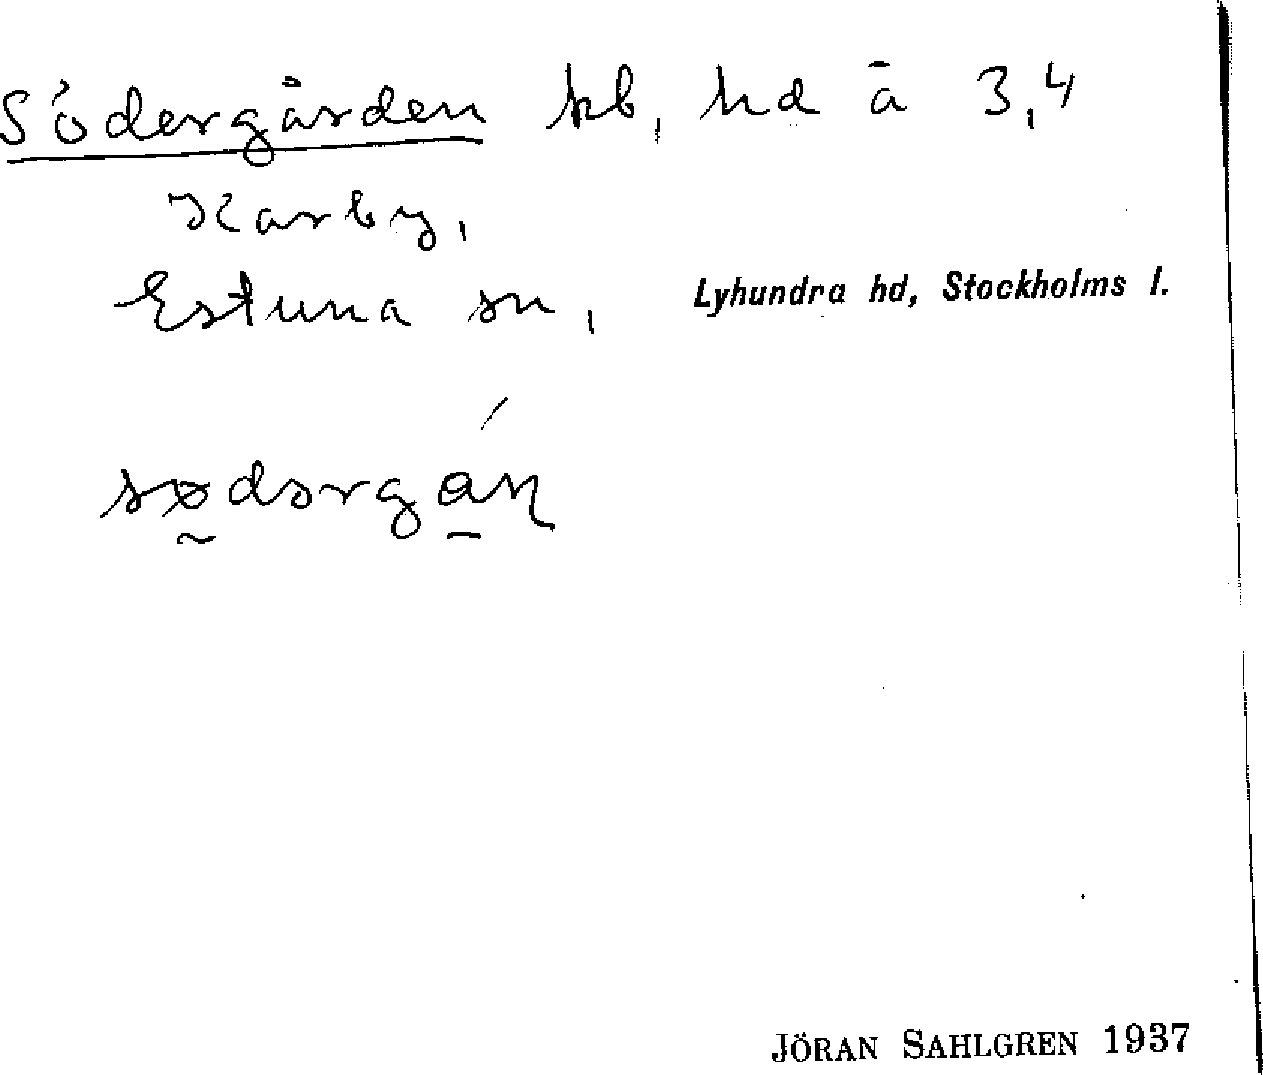 Södergården hb, hd å 3,4
Karby,
Estuna sn, Lyhundra hd, Stockholms l.
södərgán
JÖRAN SAHLGREN 1937